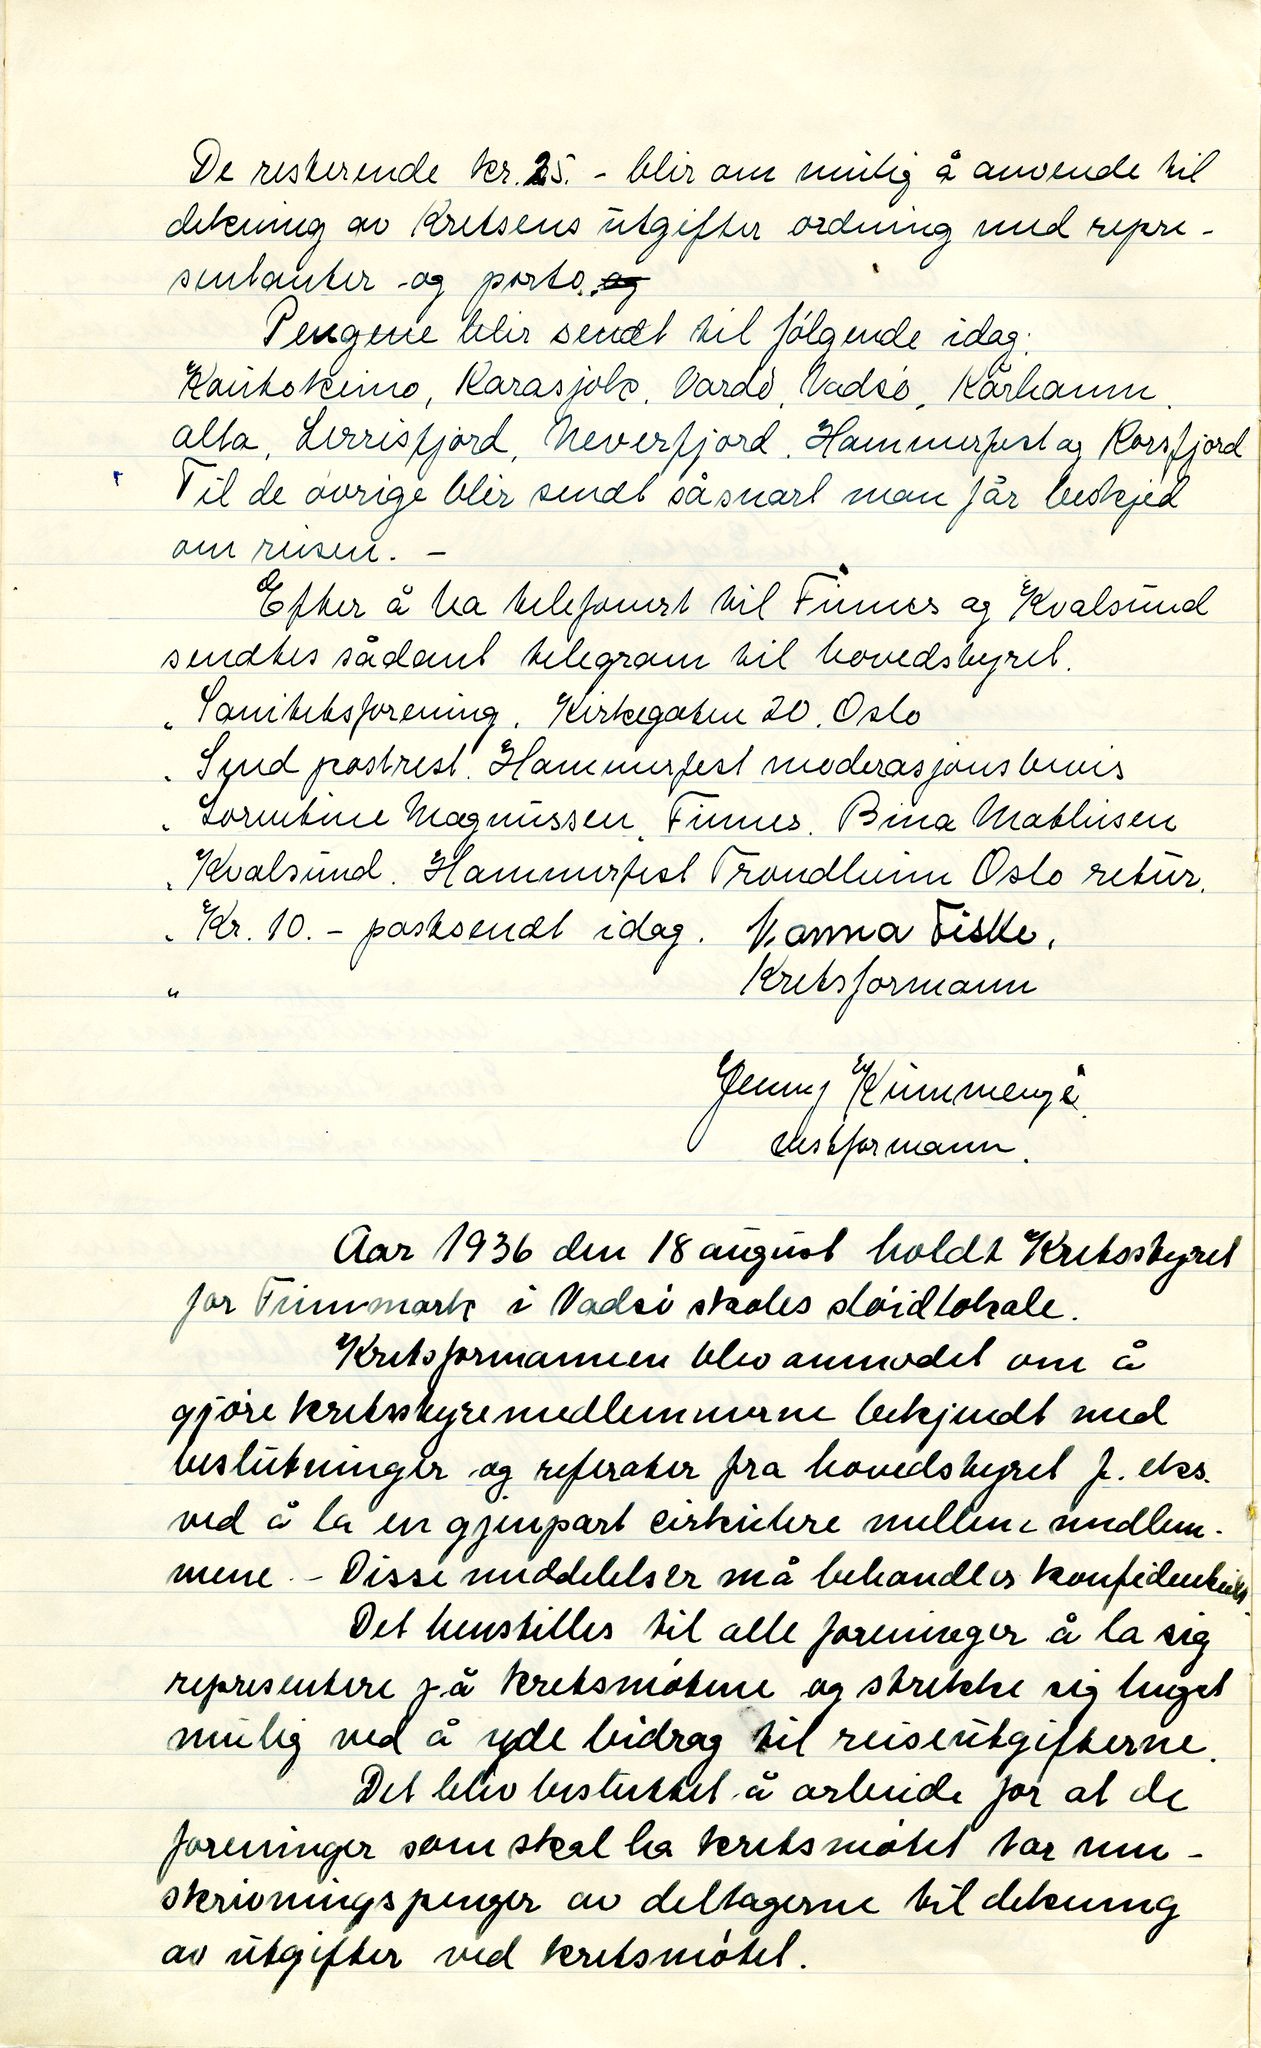 De resterende kr. 25. - blir om mulig å anvende til
dekning av Kretsens utgifter ordning med repre-
sentanter og porto. og
Pengene blir sendt til følgende idag:
Kautokeino, Karasjok, Vardø, Vadsø, Kårhamn,
Alta, Lerrisfjord, Neverfjord, Hammerfest og Korsfjord
Til de øvrige blir sendt såsnart man får beskjed
om reisen. -
Efter å ha telefonert til Finnes og Kvalsund
sendtes sådant telegram til hovedstyret.
„ Sanitetsforening, Kirkegaten 20, Oslo
„ Send postrest. Hammerfest moderasjonsbevis
„ Lorentine Magnussen, Finnes. Bina Mathisen
„ Kvalsund. Hammerfest Trondheim Oslo retur.
„ Kr. 10. - postsendt idag. Nanna Fiske.
" Kretsformann
Jenny Kummeneje.
Nestformann.
Aar 1936 den 18 august holdt Kretsstyret
for Finnmark i Vadsø skoles sløidlokale.
Kretsformannen blev anmodet om å
gjøre kretsstyremedlemmerne bekjendt med
beslutninger og referater fra hovedstyret f. eks.
ved å la en gjenpart cirkulere mellem medlem-
mene. - Disse meddelelser må behandles konfidentielt.
Det henstilles til alle foreninger å la sig
representere på kretsmøtene og strekke sig lengst
mulig ved å yde bidrag til reiseutgifterne.
Det blev besluttet å arbeide for at de
foreninger som skal ha kretsmøtet tar inn-
skrivningspenger av deltagerne til dekning
av utgifter ved kretsmøtet.